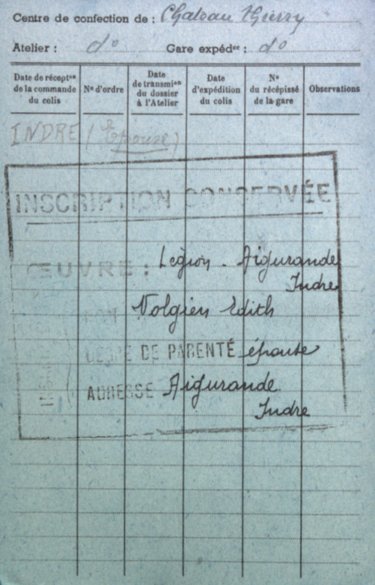 Centre de confection de : Chateau Thierry
Atelier : do Gare expédce : do
Date de récepton de la commande du colis
No d'ordre
Date de transmion du dossier à l'Atelier
Date d'expédition du colis
No du récépissé de la gare
Observations
INDRE (Epouse)
INSCRIPTION CONSERVÉE
ŒUVRE : Légion - Aigurande
Indre
Volgien Edith
DE PARENTÉ épouse
ADRESSE Aigurande
Indre